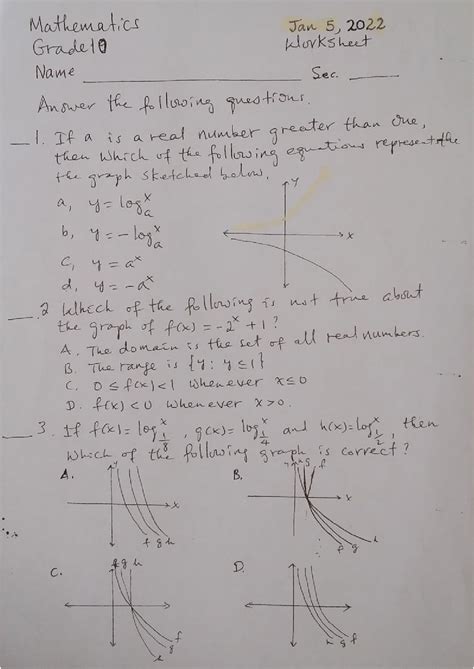 Mathematics
Jan 5, 2022
Grade 10
Worksheet
Name
Sec.
Answer the following questions.
1. If a is a real number greater than one,
then which of the following equations represent the
the graph sketched below.
a, y = log_a^x
b, y = -log_a^x
c, y = a^x
d, y = -a^x
y
x
2 Which of the following is not true about
the graph of f(x) = -2^x + 1?
A. The domain is the set of all real numbers.
B. The range is {y: y ≤ 1}
C. 0 ≤ f(x) < 1 whenever x ≤ 0
D. f(x) < 0 whenever x > 0.
3. If f(x) = log_{1/8}^x, g(x) = log_{1/4}^x and h(x) = log_{1/2}^x, then
which of the following graph is correct?
A.
y
x
f g h
B.
f
x
f g h
C.
f g h
f
g
h
D.
h g f